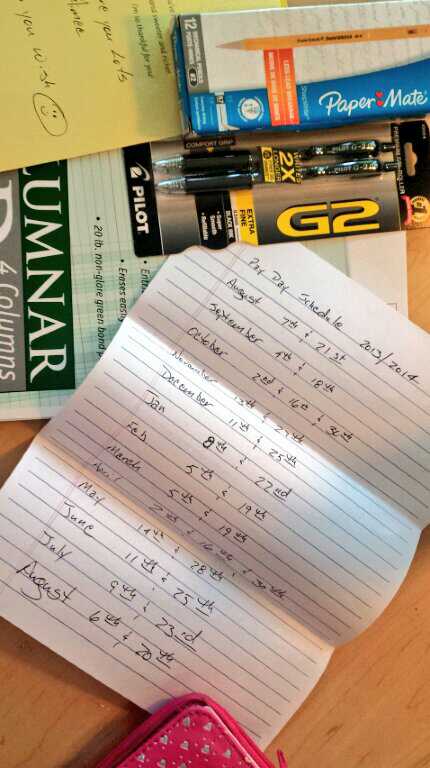 I'm so thankful for your
you lots
you wish
12
Paper Mate
COMFORT GRIP
PILOT
WRITES
2X
LONGER
EXTRA
FINE
G2
UMNAR
4 Columns
• 20 lb. non-glare green bond
• Erases
Pay Day Schedule 2013/2014
August 7th & 21st
September 4th & 18th
October 2nd & 16th & 30th
November 13th & 27th
December 11th & 25th
Jan 8th & 22nd
Feb 5th & 19th
March 5th & 19th
April 2nd & 16th & 30th
May 14th & 28th
June 11th & 25th
July 9th & 23rd
August 6th & 20th